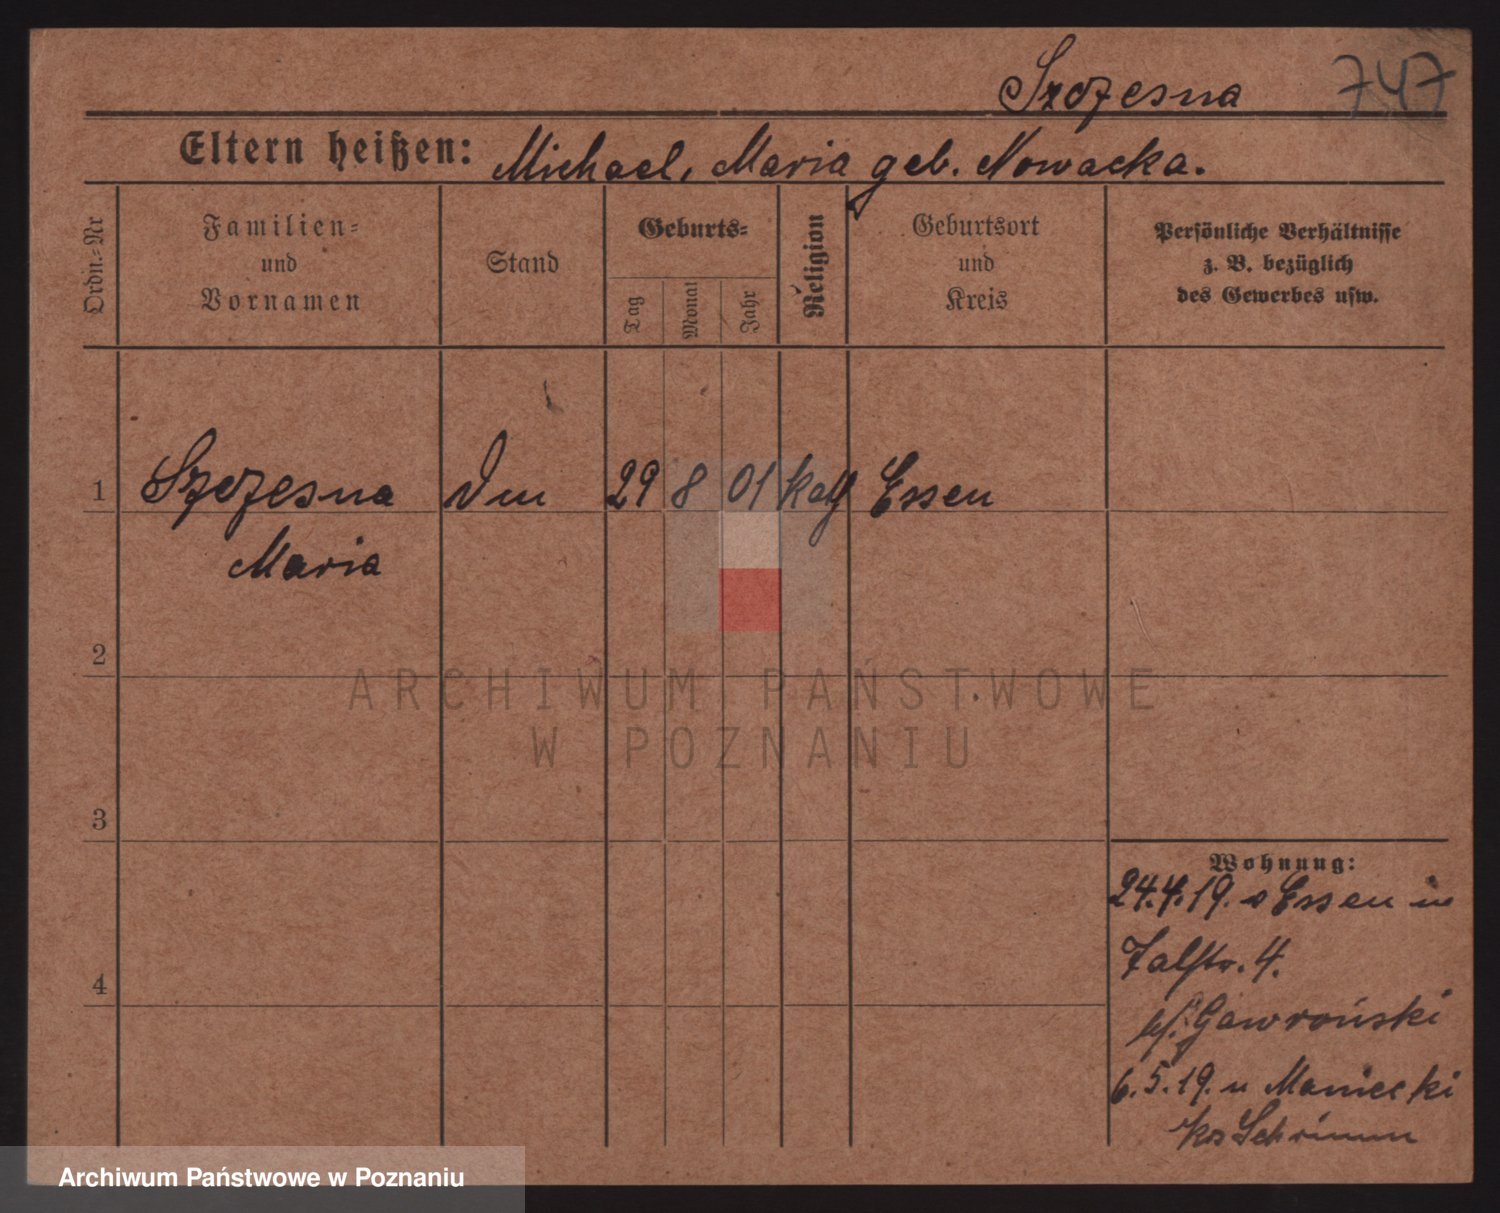 Szczesna 747
Eltern heißen: Michael, Maria geb. Nowacka.
Ordn.-Nr
Familien-
und
Vornamen
Stand
Geburts-
Tag
Monat
Jahr
Religion
Geburtsort
und
Kreis
Persönliche Verhältnisse
z. B. bezüglich
des Gewerbes usw.
1 Szczesna 29 8 01 kath Essen
Maria
2
3
4
Wohnung:
24.4.19. Essen in
Talstr. 4.
Gawroński
6.5.19. n Maniecki
Krs Schrimm
ARCHIWUM PAŃSTWOWE
W POZNANIU
Archiwum Państwowe w Poznaniu